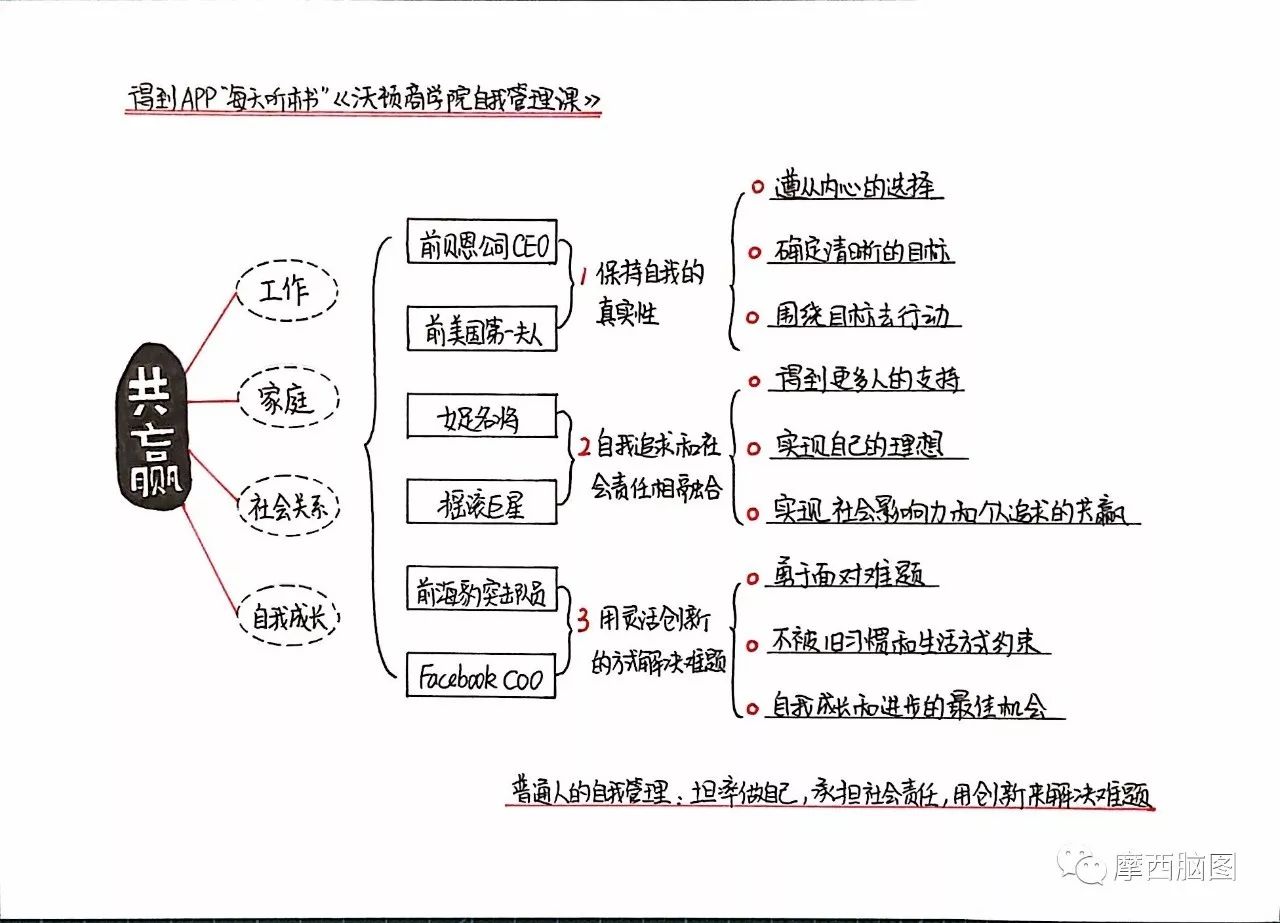 得到APP“每天听本书”《沃顿商学院自我管理课》
共赢
工作
家庭
社会关系
自我成长
前贝恩公司CEO
前美国第一夫人
1 保持自我的
真实性
遵从内心的选择
确定清晰的目标
围绕目标去行动
女足名将
摇滚巨星
2 自我追求和社
会责任相融合
得到更多人的支持
实现自己的理想
实现社会影响力和个人追求的共赢
前海豹突击队员
Facebook COO
3 用灵活创新
的方式解决难题
勇于面对难题
不被旧习惯和生活方式约束
自我成长和进步的最佳机会
普通人的自我管理：坦率做自己，承担社会责任，用创新来解决难题
摩西脑图